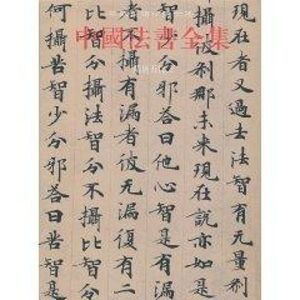 中國法書全集
現在者又過去法智有無量刹
攝彼刹那未來現在說亦如是
智少分邪荅曰他心智是有漏
者不攝有漏者彼无漏復有二
比智分攝法智分不攝比智分
何攝苦智少分邪荅曰苦智是